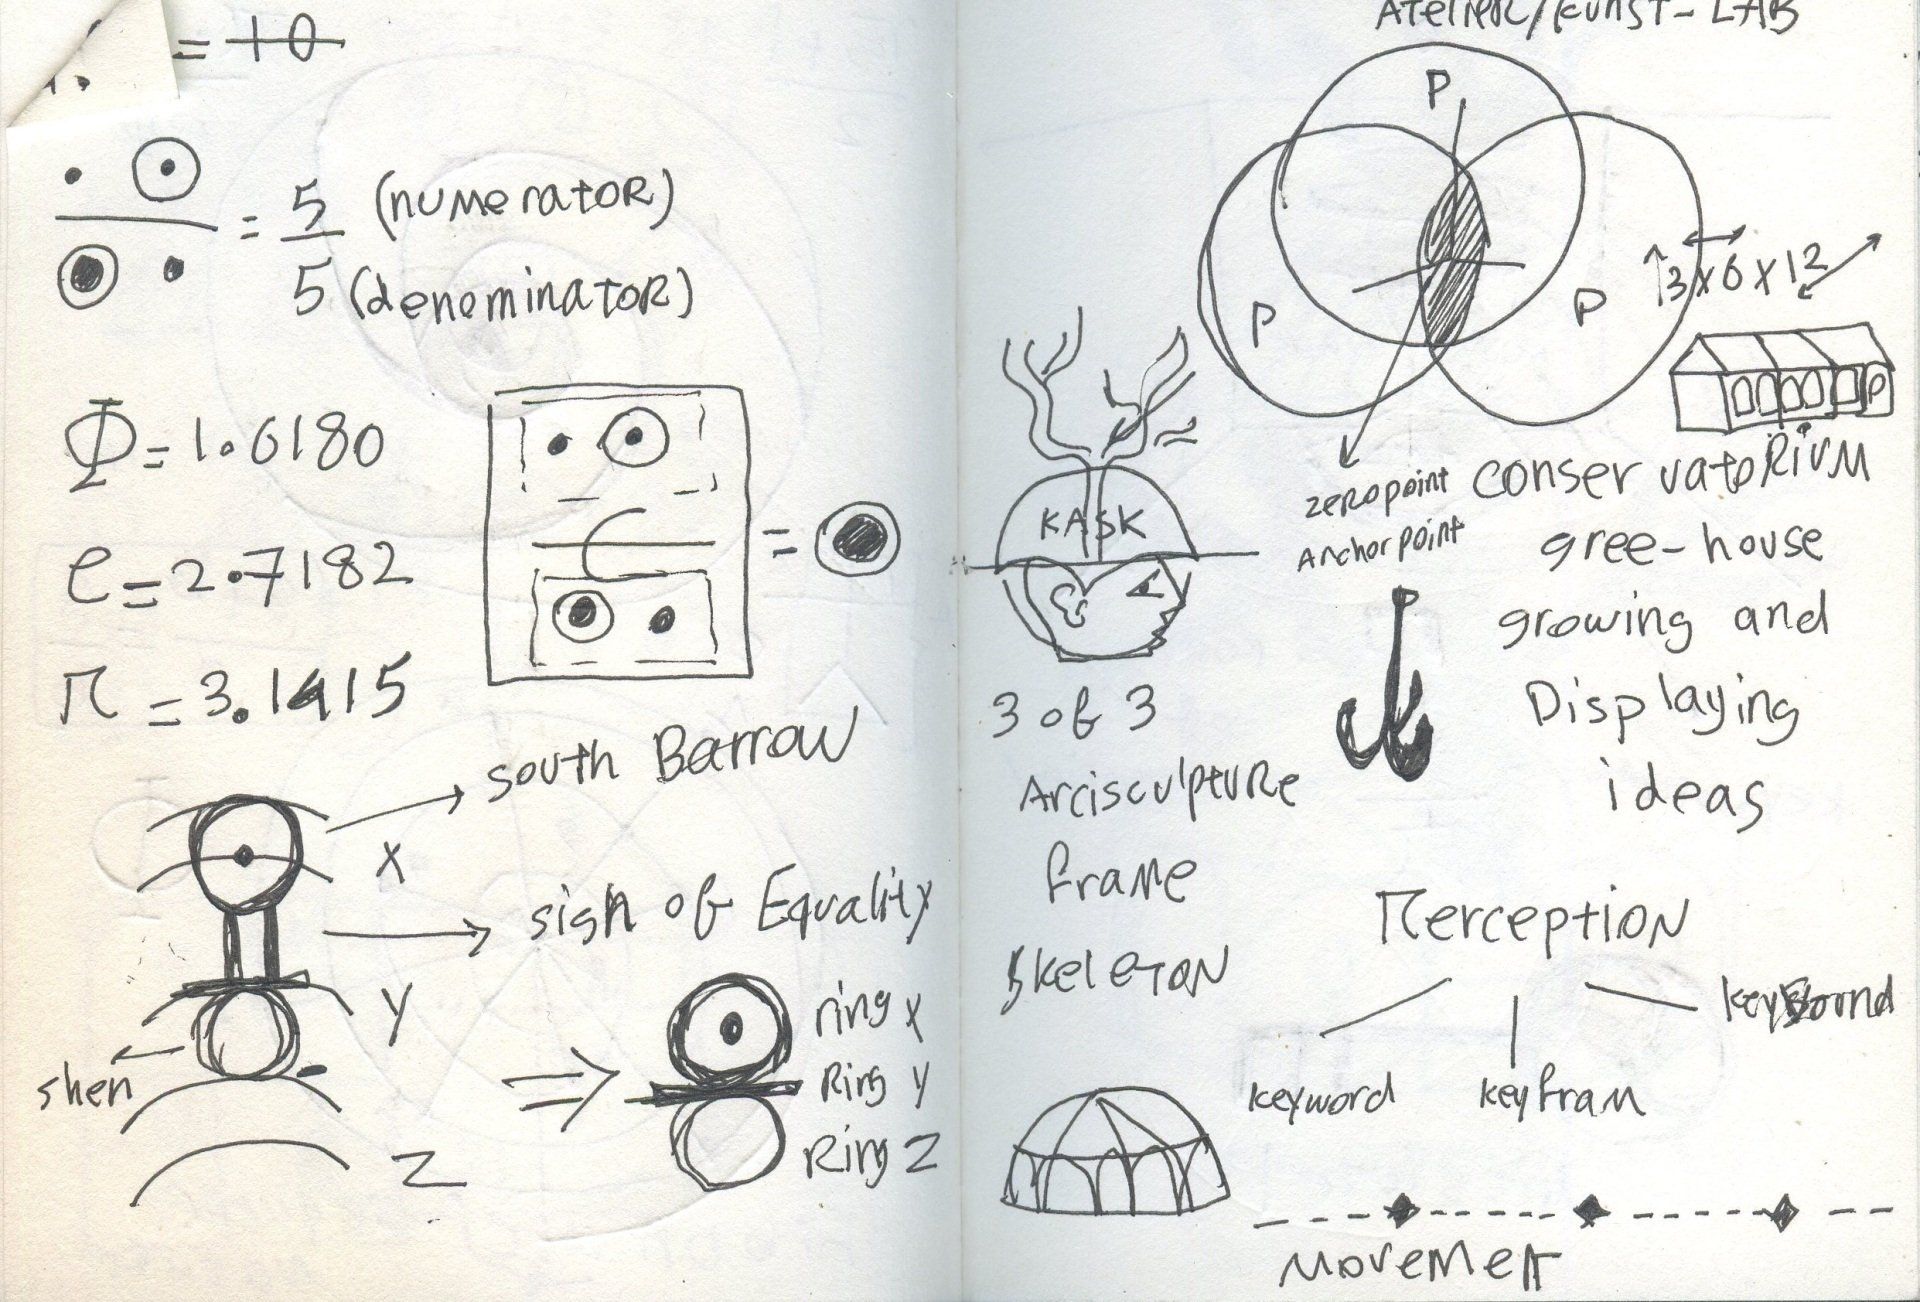 = 10
= 5 (numerator)
5 (denominator)
Φ = 1.6180
e = 2.7182
π = 3.1415
south Barrow
x
sign of Equality
y
shen
z
ring x
Ring y
Ring z
Atelier/Kunst-LAB
P
P
P
3 x 6 x 12
P
zeropoint
Anchor point
conservatoRiuM
gree-house
growing and
Displaying
ideas
KASK
3 of 3
Arcisculpture
frame
skeleton
πerception
keyword
keyfram
keysound
Movement